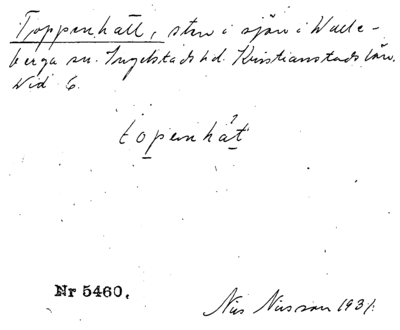 Toppenhätt, sten i sjön i Walle-
berga sn. Ingelstads hd. Kristianstads län.
Wid 6.
topenhät
Nr 5460.
Nils Nilsson 1931.